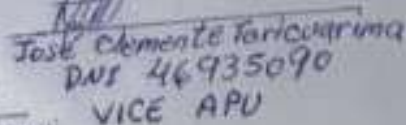 José Clemente Taricuarima
DNI 46935090
VICE APU